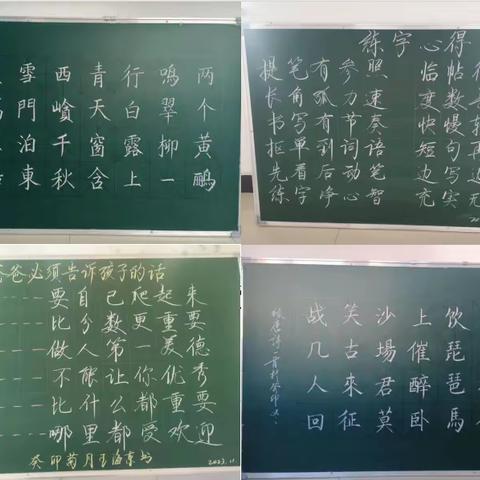 两个黄鹂
鳴翠柳一
行白露上
青天窗含
西嶺千秋
雪門泊東
练字心得
提笔有参照临帖
速度数
书写有节奏快慢
词语短句
先看后动笔边写边
练字净心智充实充
爸必须告诉孩子的话
要自己爬起来
比分数更重要
做人第一美德
不能让你优秀
比什么都重要
哪里都受欢迎
癸卯菊月王海京书 2023.11.
饮琵琶馬
上催醉卧
沙場君莫
笑古來征
战几人回
唐诗一首